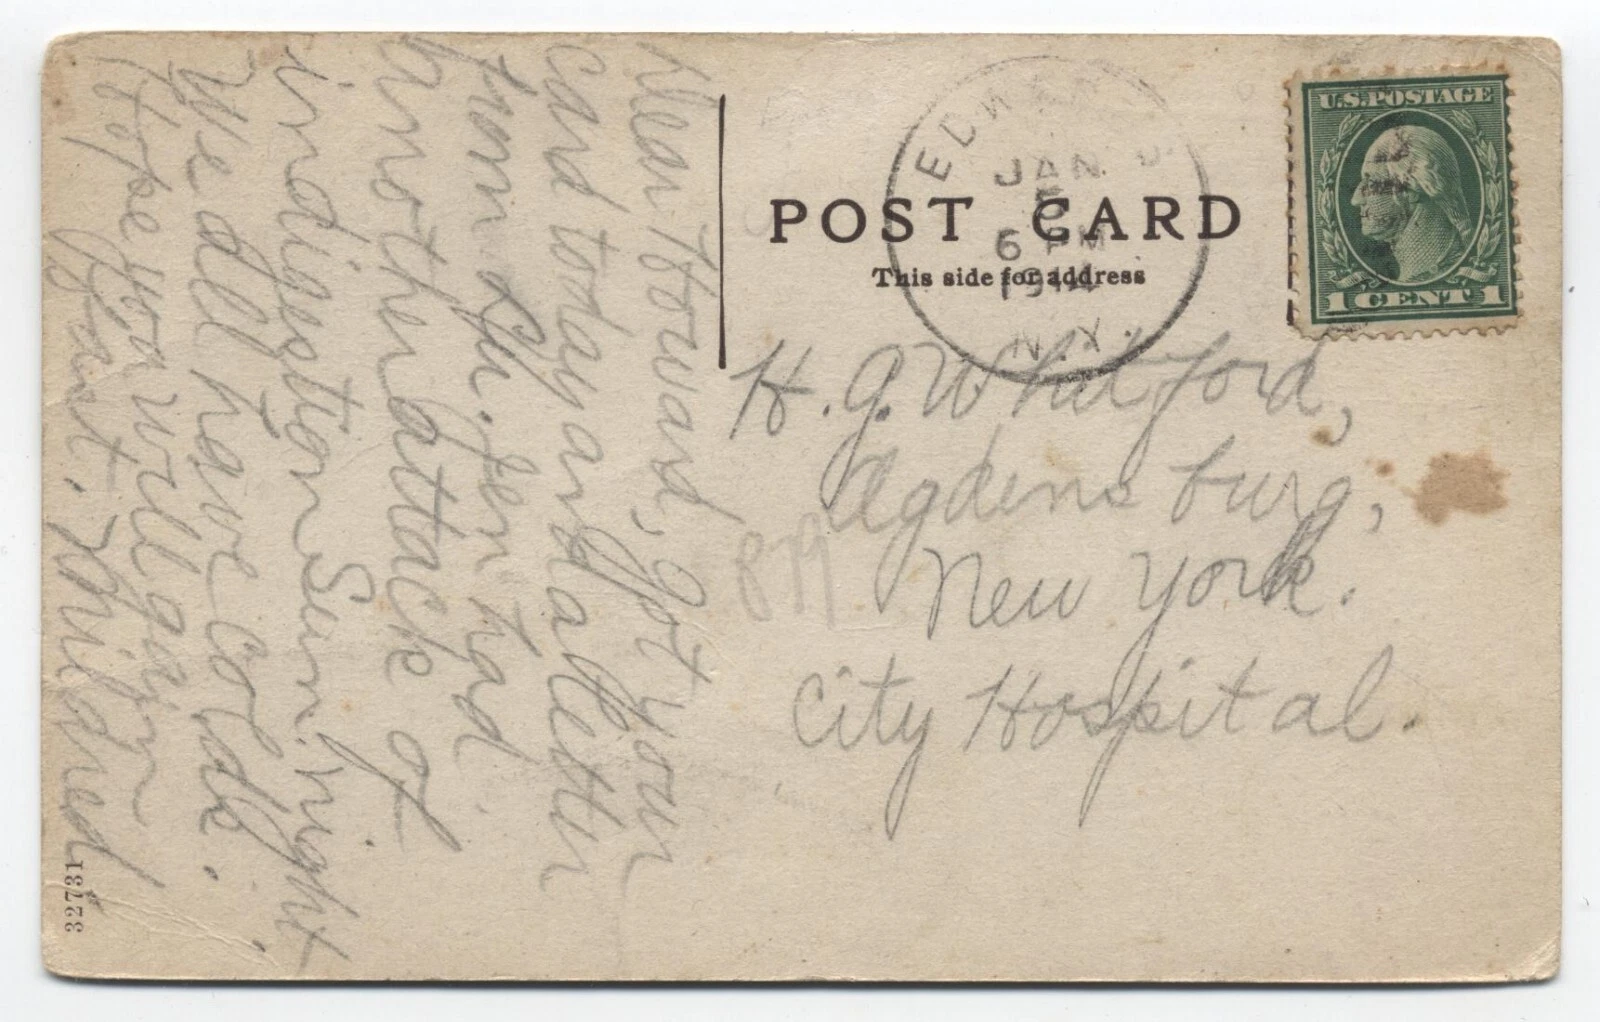 Dear Howard, Got your
card today and a letter
from Lu. Jen had
another attack of
indigestion Sun. night
We all have colds.
Hope you will gain
fast. Mildred
32731
POST CARD
This side for address
EDWARDS
JAN 5
6 PM
1914
N.Y.
U.S. POSTAGE
1 CENT 1
H. G. Whitford,
Ogdensburg,
New York.
City Hospital.
819